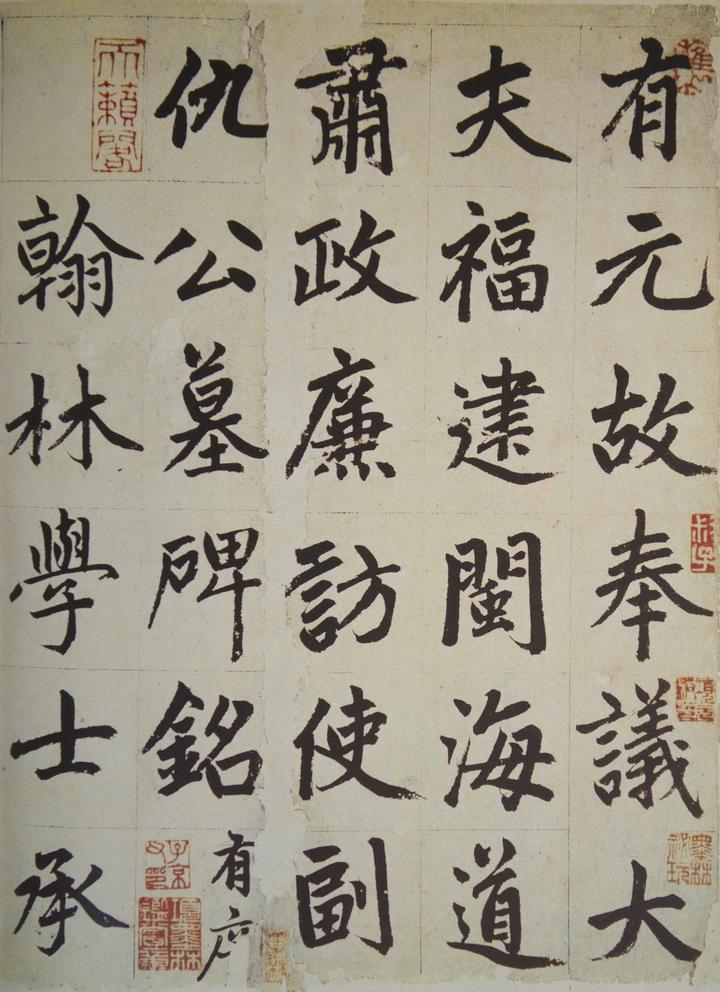 有元故奉議大
夫福建閩海道
肅政廉訪使副
仇公墓碑銘
有
翰林學士承
天籟閣